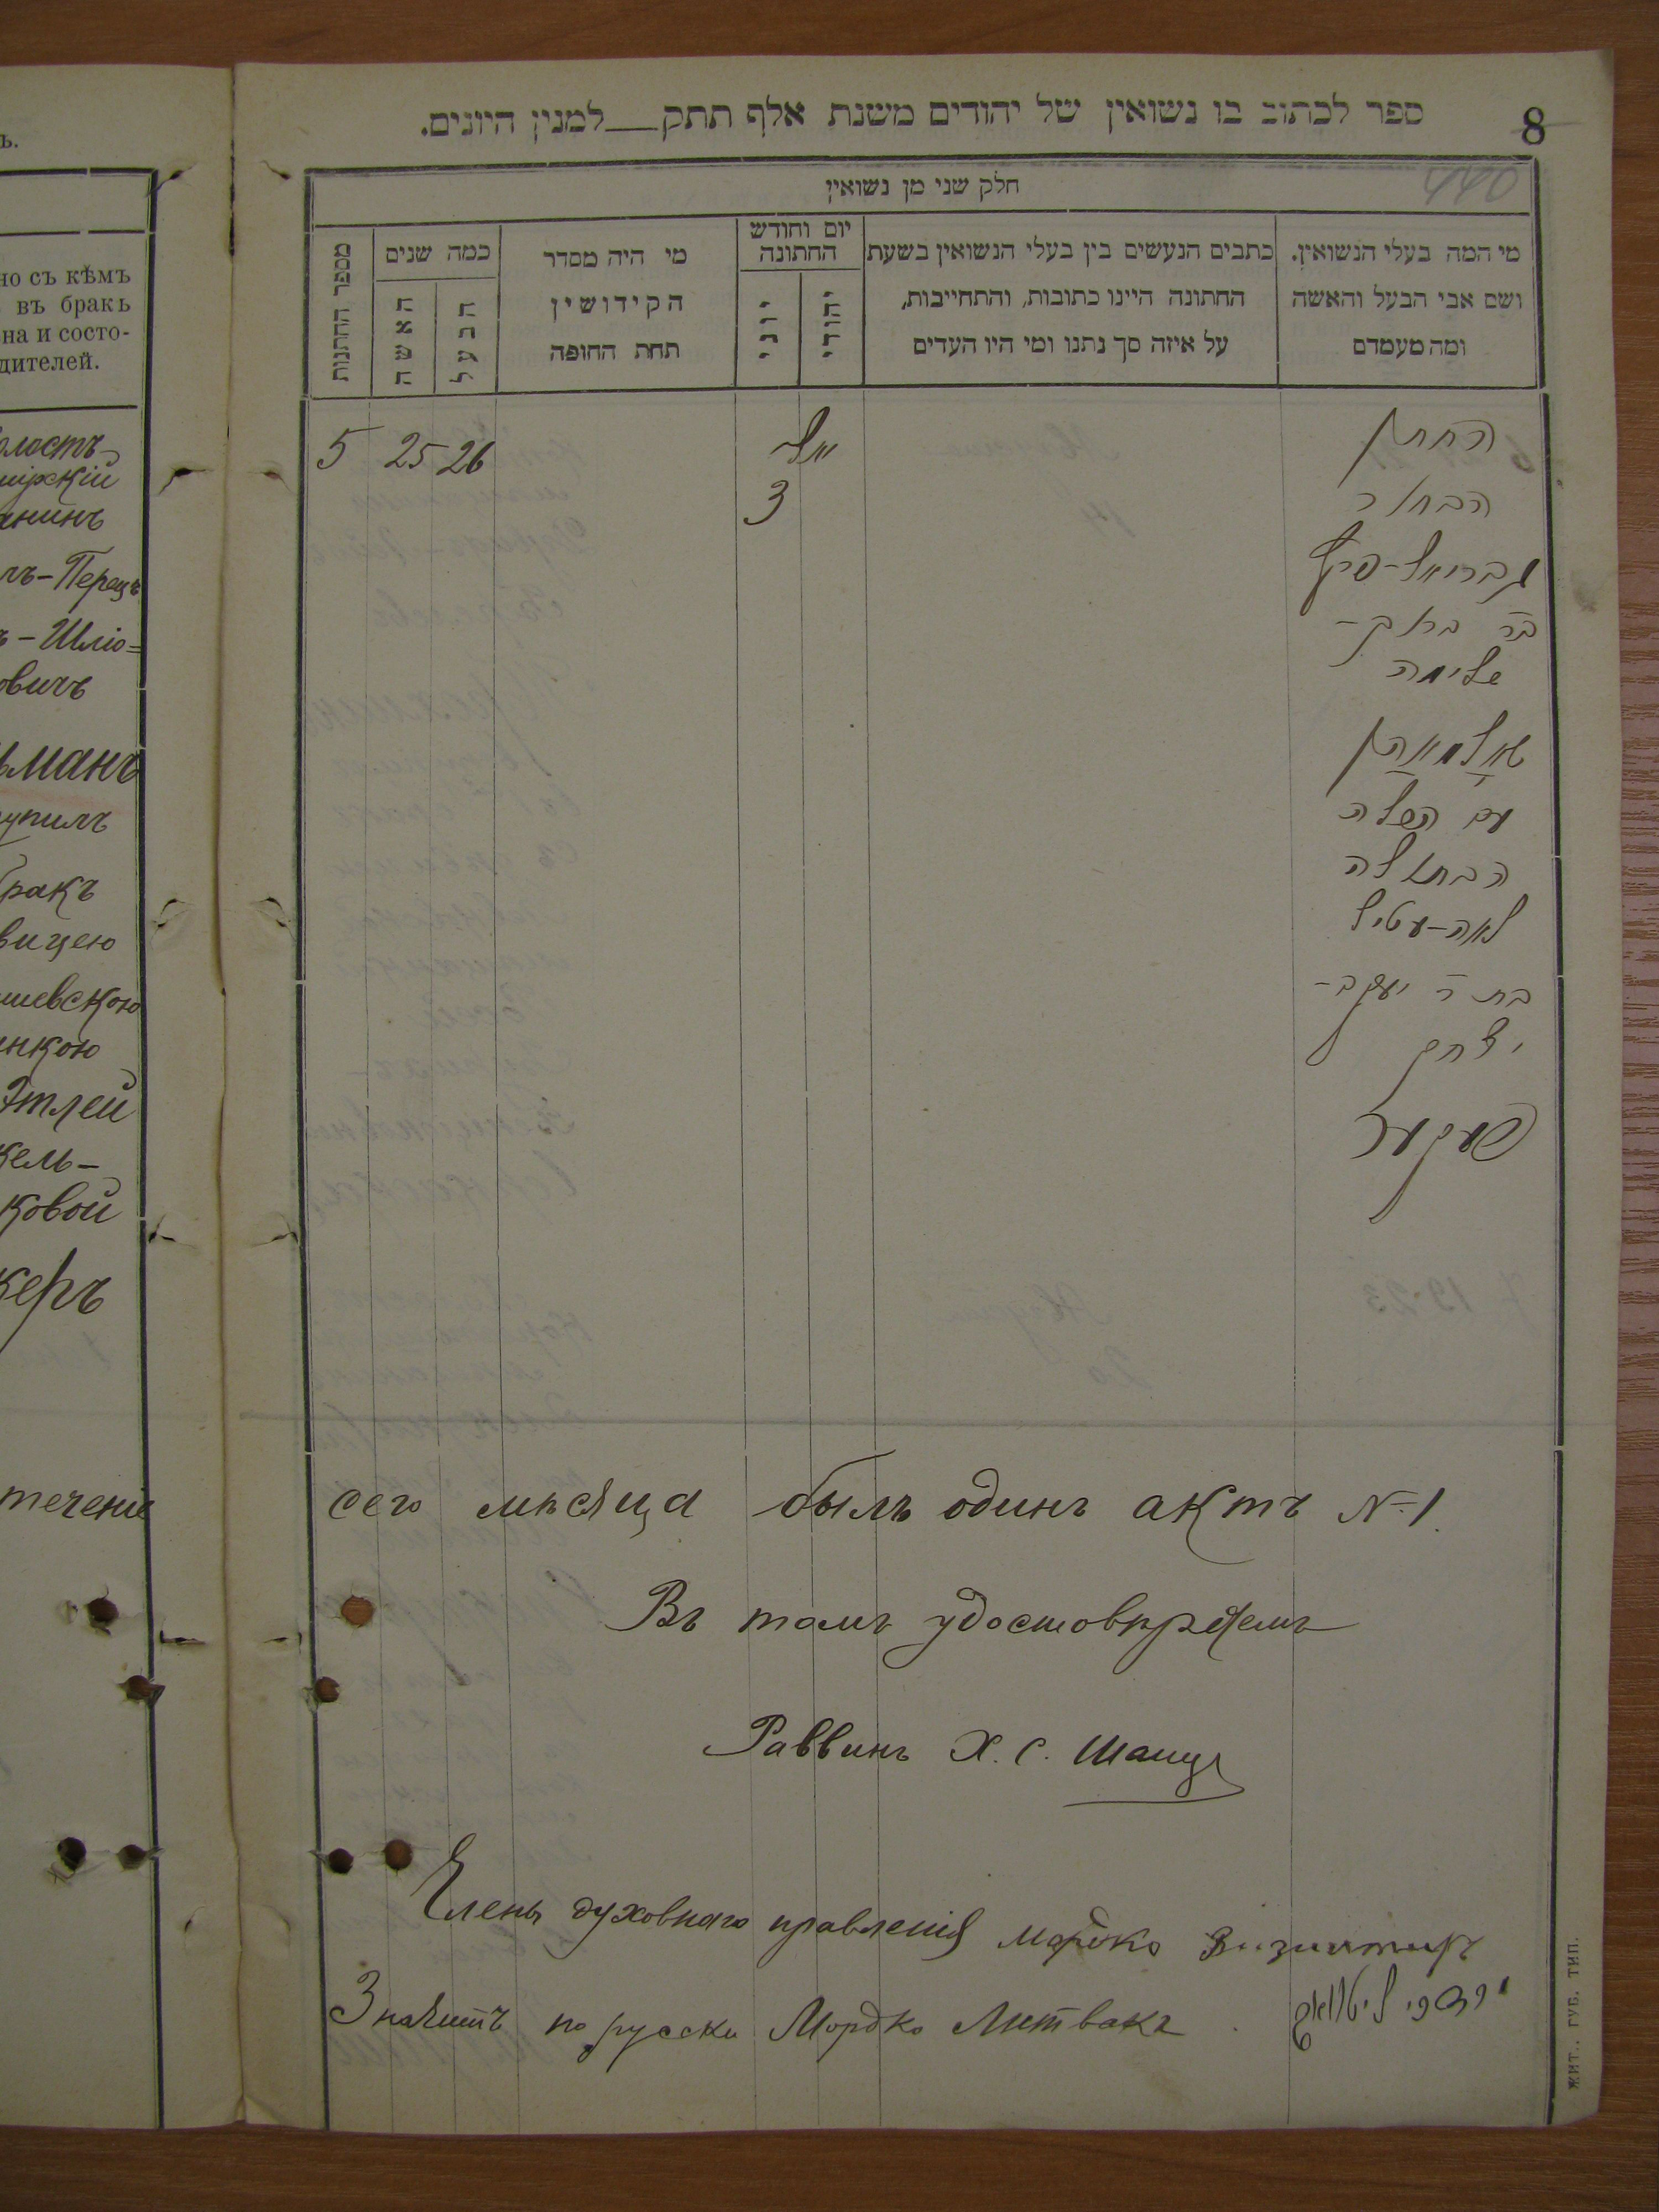 ספר לכתוב בו נשואין של יהודים משנת אלף תתק__למנין היונים.
8
440
חלק שני מן נשואין
מי המה בעלי הנשואין.
ושם אבי הבעל והאשה
ומה מעמדם
כתבים הנעשים בין בעלי הנשואין בשעת
החתונה היינו כתובות, והתחייבות,
על איזה סך נתנו ומי היו העדים
יום וחודש
החתונה
יהודי
יוני
מי היה מסדר
הקידושין
תחת החופה
כמה שנים
הבעל
האשה
מספר החתנות
5 25 26
3
החתן
הבחור
גבריאל-פרץ
שליומה
עם
הבתולה
לאה-עטיל
בת ר יעקב-
יצחק
сего мѣсяца былъ одинъ актъ №1.
Въ томъ удостовѣряемъ
Раввинъ Х. С. Шацъ
Членъ духовнаго правленія
Значитъ по русски Мордко Литвакъ
ъ.
но съ кѣмъ
въ бракъ
на и состо-
дителей.
анинъ
-Перецъ
-Шліо=
овичъ
манъ
купилъ
бракъ
вицею
шевскою
нкою
Этлей
кель-
ковой
керъ
теченіе
ЖИТ. ГУБ. ТИП.